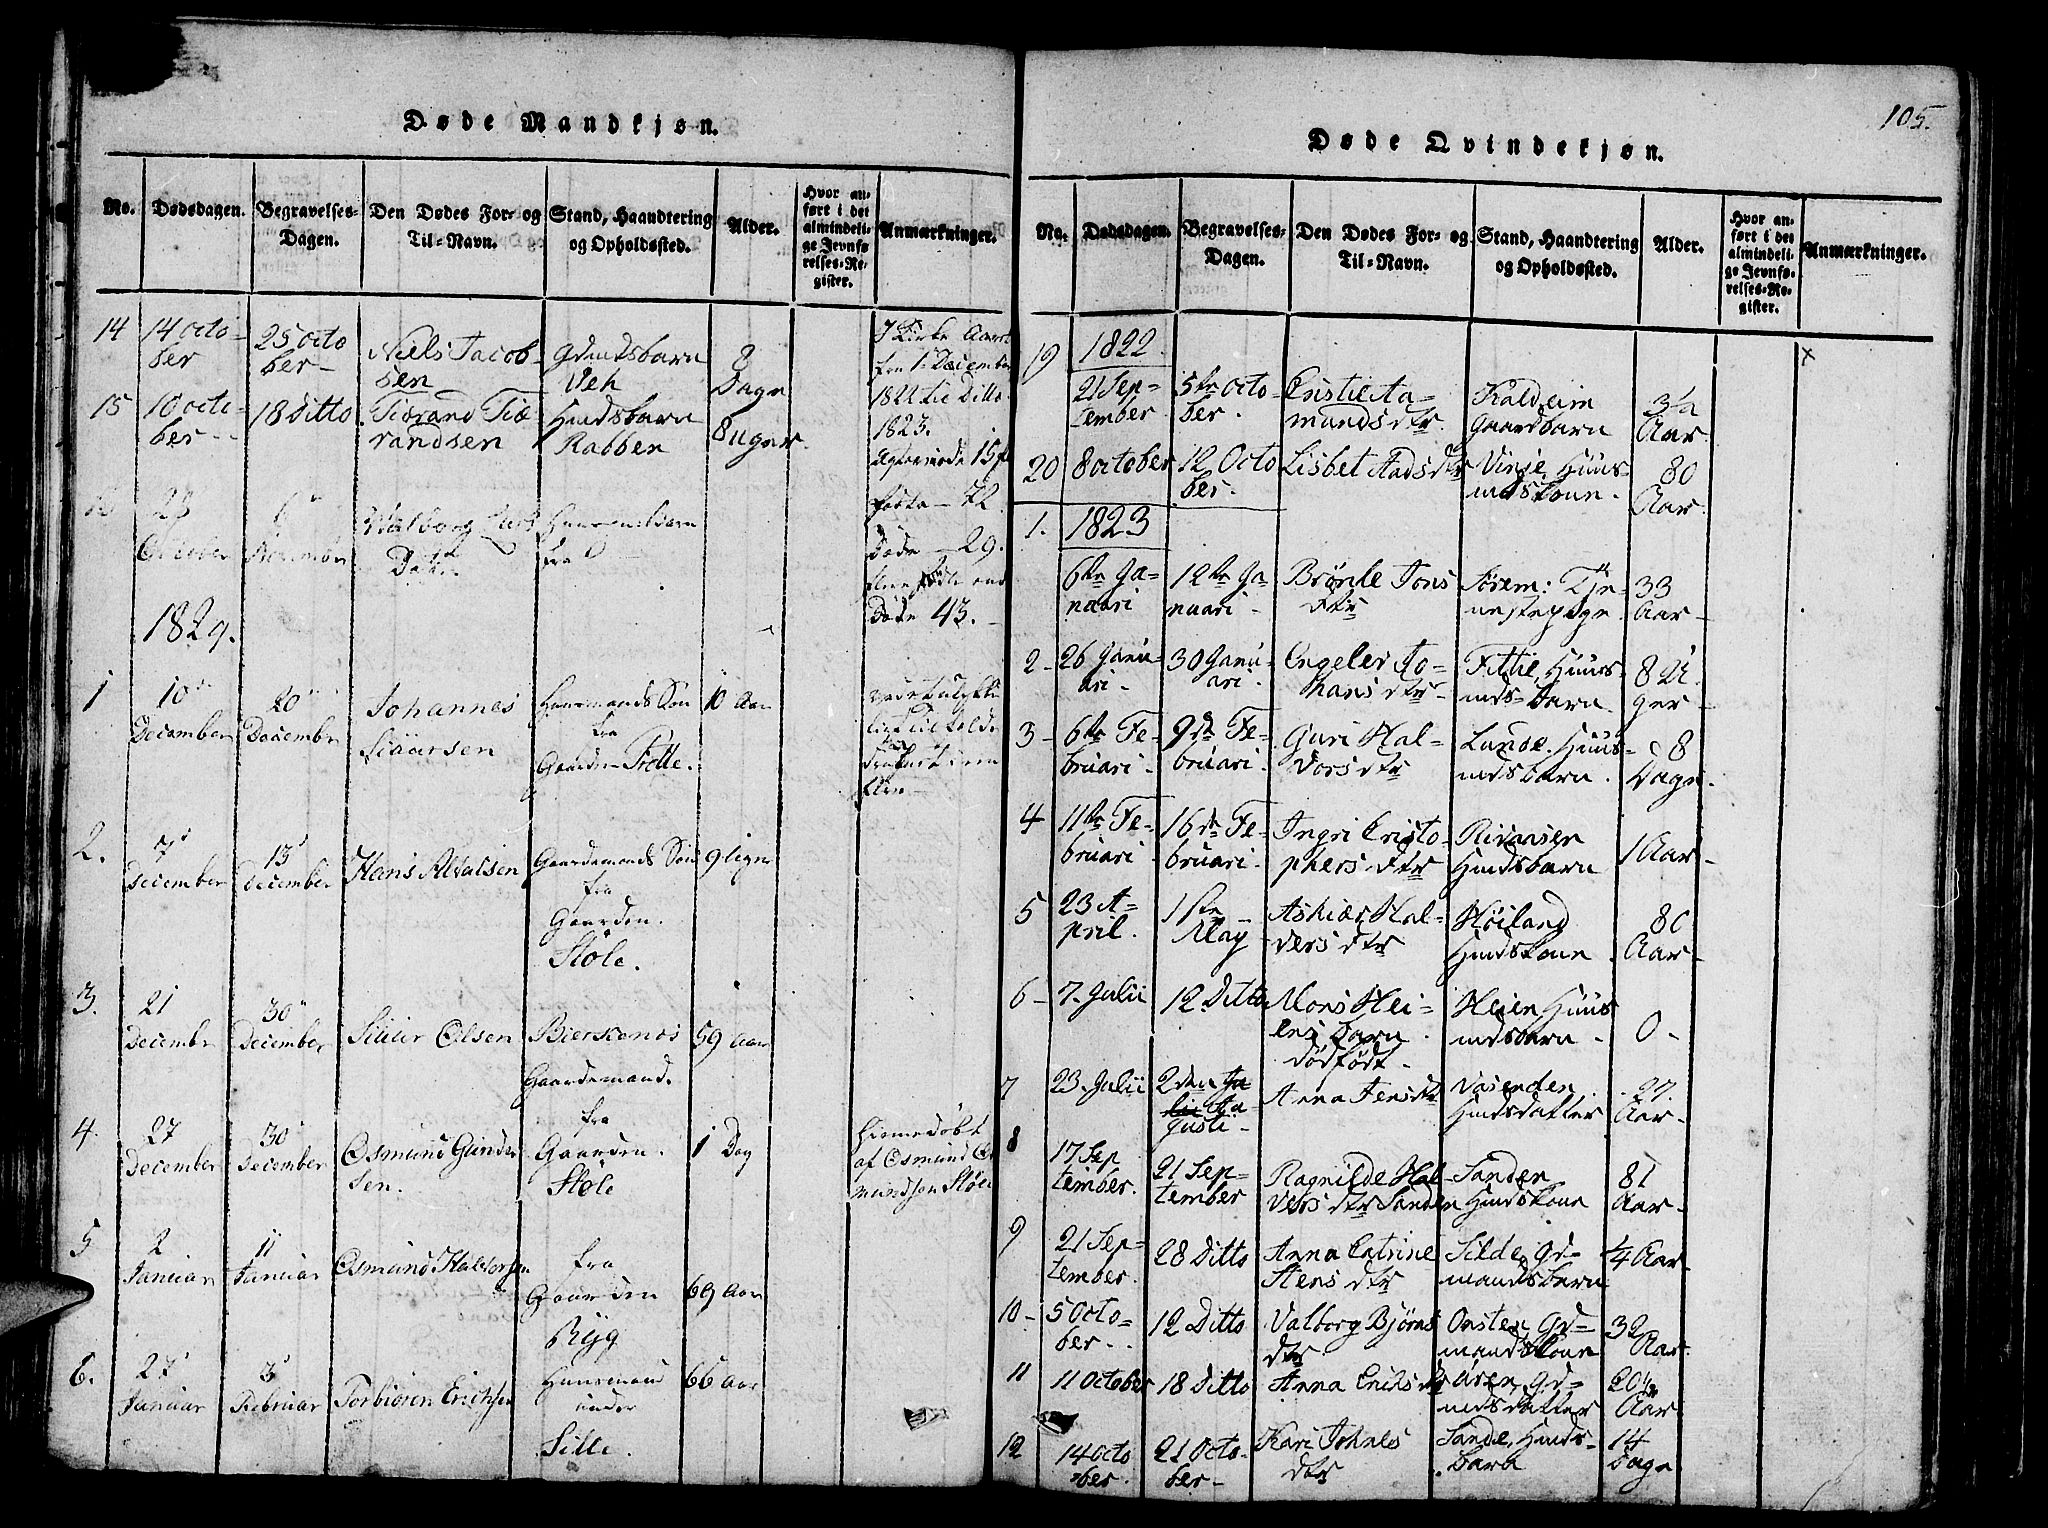 105.
Døde Mandkjøn.
No.
Dødsdagen.
Begravelses-
Dagen.
Den Dødes For- og
Til-Navn.
Stand, Haandtering
og Opholdssted.
Alder.
Hvor an-
ført i det
almindeli-
ge Jevnfø-
relses-Re-
gister.
Anmærkninger.
14
14 octo-
ber
25 octo
ber-
Niels Jacob-
sen
Gdmdsbarn
Veh
8
Dage
15
10 octo-
ber-
18 Ditto
Tiørand Tiø
randsen
Hmdsbarn
Rabben
8 uger
I Kirke Aaret
fra 1. December
1822 til Ditto
1823.
Ægteviede 15 p
fødte - 72.
Døde - 29.
flere fødte end
Døde 43.
23
October
November
Walborg Lars
Datr.
fra
1829.
1
10
December
20
December
Johannes
Siuursen
Huusmands Søn
fra
Gaarden Fitte.
10 Aar
2.
7
December
13
December
Hans Alvalsen
Gaardemands Søn
fra
Gaarden
Støle.
9 Uger
3.
21
December
30
December
Siuur Olsen
Bierkenes
Gaardemand.
59 Aar
4.
27
December
30
December
Osmund Gunder
sen.
fra
Gaarden
Støle
1 Dag
Hiemedøbt
af Osmund Os
mundsen Støle
5
2
Januar
11
Januar
Osmund Haldorsen
fra
Gaarden
Ryg
69 Aar
6.
27
Januar
3
Februar
Torbiøren Erichsen
Huusmand
under
Sille.
66 Aar
Døde Qvindekjøn.
No.
Dødsdagen.
Begravelses-
Dagen.
Den Dødes For- og
Til-Navn.
Stand, Haandtering
og Opholdssted.
Alder.
Hvor an-
ført i det
almindeli-
ge Jevnfø-
relses-Re-
gister.
Anmærkninger.
19
1822.
21 Sep=
tember
5te octo
ber.
Cristie Aa=
mandsdtr
Kaldeim
Gaardbarn
3½
Aar
20
8 october
12 Octo
ber.
Lisbet Aadsdtr
Vinje, Huus-
mdskone.
80
Aar
1.
1823
6te Ja=
nuari
12te Ja=
nuari -
Brønle Jons
dtr
Sørem: Tje
nestepige
33
Aar-
2-
26 Janu-
ari-
30 Janu-
ari.
Engeler Jo-
hansdtr-
Fittie, Huus-
mds-barn.
8 U.
ger-
3-
6te Fe-
bruari-
9de Fe-
bruari.
Guri Hal-
dorsdtr
Lunde. Huus-
mdsbarn.
8
Dage.
4
11te Fe-
bruari-
16de Fe-
bruari.
Ingri Cristo-
phersdtr
Rivansen
Hmdsbarn
1 Aar-
5
23 A-
pril.
1ste
May
Askiær Hal-
dersdtr
Høiland
Hmdskone
80
Aar-
6-
7. Julii
12 Ditto
Mons Hei-
ens barn
dødfødt.
Heien Huus
mdsbarn-
0-
7
23. Julii
2den Ju
lii Au-
gusti-
Anna Jensdtr
Vasenden
Hmdsdatter
27.
Aar-
8
17 Sep
tember.
21 Sep=
tember
Ragnilde Hal-
vorsdtr Sanden
Sanden
Hmdskone
81
Aar-
9
21 Sep=
tember.
28 Ditto
Anna Catrine
Stensdtr
Silde, Gd-
mandsbarn
¼ Aar-
10-
5 Octo-
ber-
12 Ditto
Valborg Bjørns
dtr
Onsten Gd-
mandskone
32
Aar.
11
11 October
18 Ditto
Anna Eriksdtr
Aasen, Gd-
mdsdatter
20
Aar
12
14 Octo
ber.
21 Octo-
ber-
Kari Johnes
dtr
Sande, Hmds-
barn
14
Dage